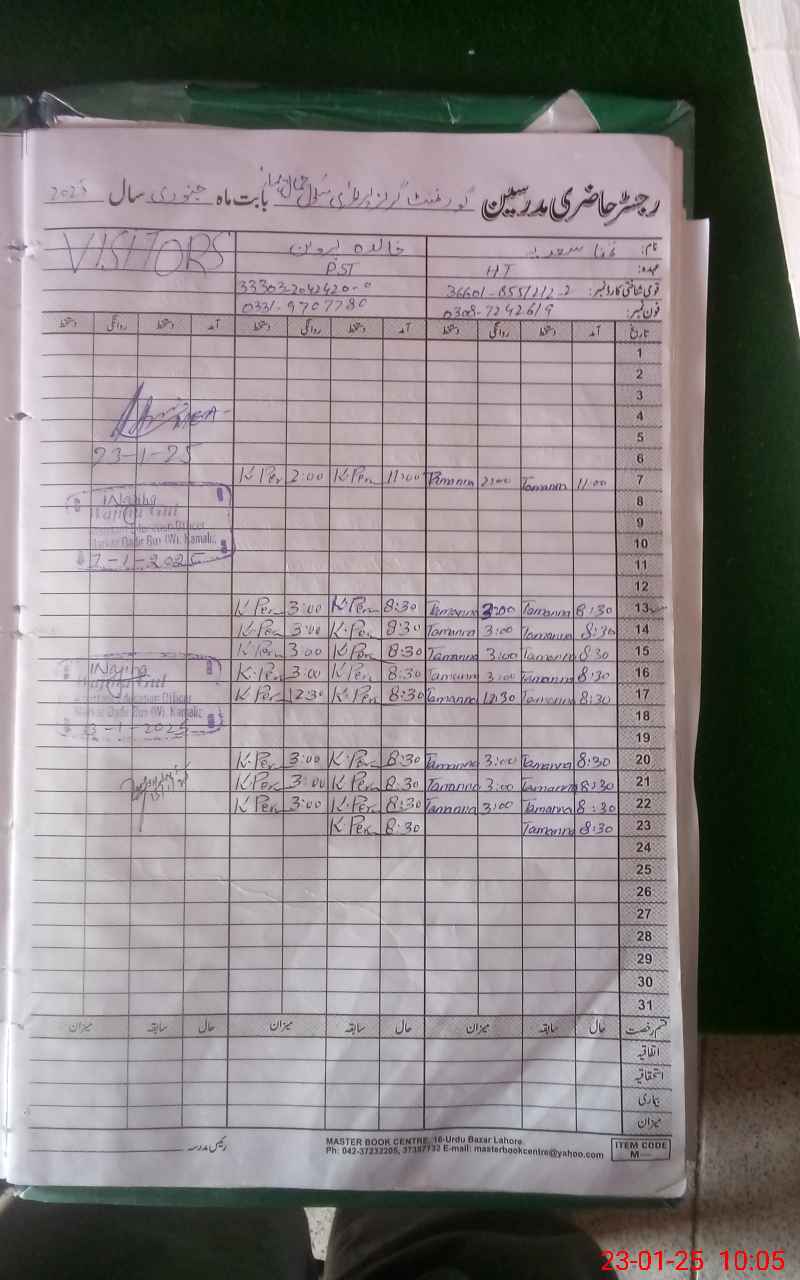 رجسٹر حاضری مدرسین گورنمنٹ گرلز پرائمری سکول بابت ماہ جنوری سال 2025
نام: سعدیہ خالدہ پروین VISITORS
عہدہ: HT PST
قومی شناختی کارڈ نمبر: 36601-8551212-2 33303-2042420-0
فون نمبر: 0308-7242619 0331-9707780
تاریخ آمد دستخط روانگی دستخط آمد دستخط روانگی دستخط آمد دستخط روانگی دستخط
1
2
3
4
5
23-1-25
6
K Per 2:00 K-Per 11:00 Tamanna 2:00 Tamanna 11:00 7
8
9
10
Markaz Dadir Bun (W). Kamalia
11
7-1-2025
12
K Per 3:00 K Per 8:30 Tamanna 3:00 Tamanna 8:30 13
K-Per 3:00 K-Per 8:30 Tamanna 3:00 Tamanna 8:30 14
K-Per 3:00 K Per 8:30 Tamanna 3:00 Tamanna 8:30 15
K-Per 3:00 K Per 8:30 Tamanna 3:00 Tamanna 8:30 16
K Per 12:30 K-Per 8:30 Tamanna 12:30 Tamanna 8:30 17
18
23-1-2025
19
K-Per 3:00 K-Per 8:30 Tamanna 3:00 Tamanna 8:30 20
K-Per 3:00 K-Per 8:30 Tamanna 3:00 Tamanna 8:30 21
K Per 3:00 K-Per 8:30 Tamanna 3:00 Tamanna 8:30 22
K Per 8:30 Tamanna 8:30 23
24
25
26
27
28
29
30
31
قسم رخصت حال سابقہ میزان حال سابقہ میزان حال سابقہ میزان
اتفاقیہ
استحقاقیہ
بیماری
میزان
رئیس مدرسہ
MASTER BOOK CENTRE, 16-Urdu Bazar Lahore.
Ph: 042-37232205, 37357732 E-mail: masterbookcentre@yahoo.com
ITEM CODE
M—
23-01-25 10:05